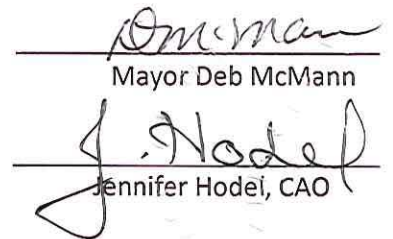 D McMann
Mayor Deb McMann
J. Hodel
Jennifer Hodel, CAO